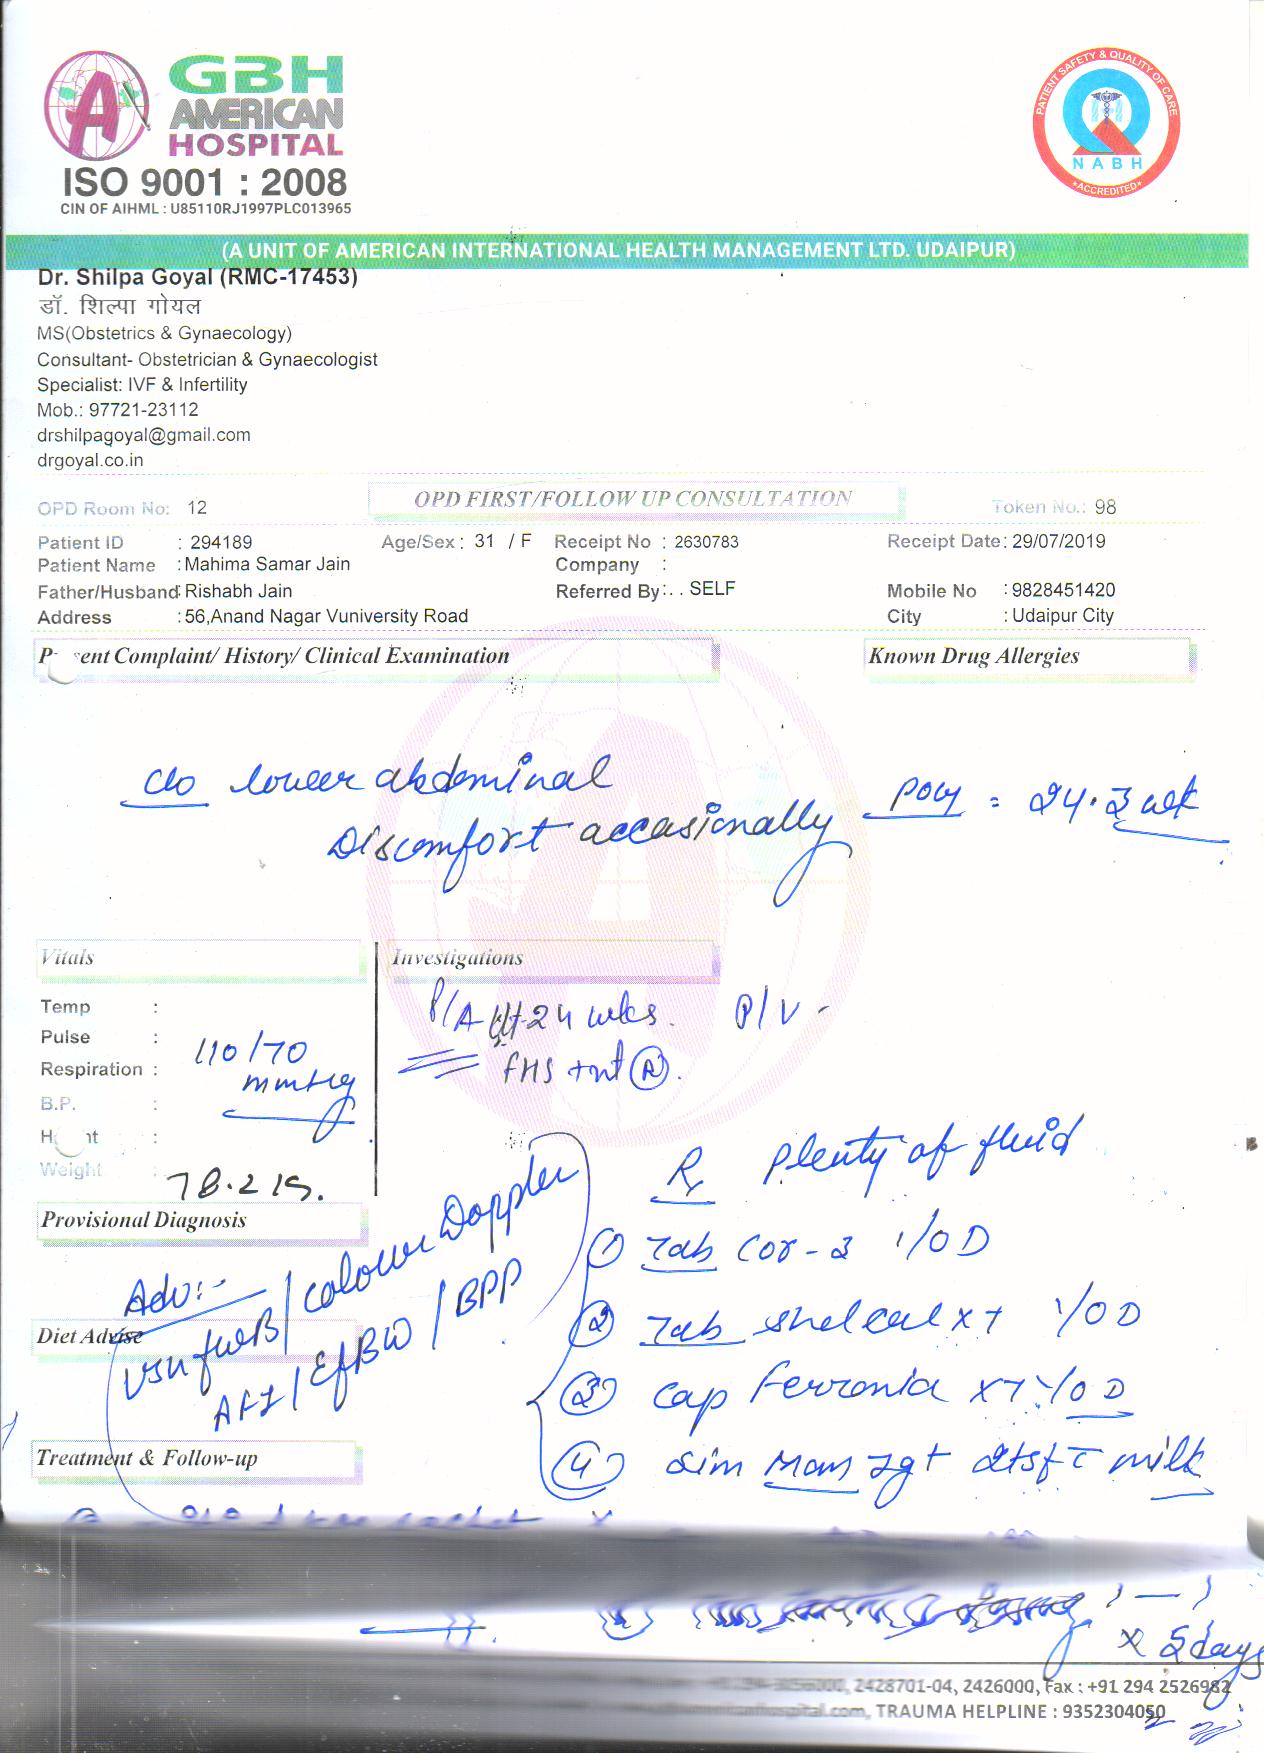 GBH
AMERICAN
HOSPITAL
ISO 9001 : 2008
CIN OF AIHML : U85110RJ1997PLC013965
PATIENT SAFETY & QUALITY OF CARE
NABH
ACCREDITED
(A UNIT OF AMERICAN INTERNATIONAL HEALTH MANAGEMENT LTD. UDAIPUR)
Dr. Shilpa Goyal (RMC-17453)
डॉ. शिल्पा गोयल
MS(Obstetrics & Gynaecology)
Consultant- Obstetrician & Gynaecologist
Specialist: IVF & Infertility
Mob.: 97721-23112
drshilpagoyal@gmail.com
drgoyal.co.in
OPD Room No: 12 OPD FIRST/FOLLOW UP CONSULTATION Token No.: 98
Patient ID : 294189 Age/Sex : 31 / F Receipt No : 2630783 Receipt Date: 29/07/2019
Patient Name : Mahima Samar Jain Company :
Father/Husband: Rishabh Jain Referred By: . . SELF Mobile No : 9828451420
Address : 56,Anand Nagar Vuniversity Road City : Udaipur City
Present Complaint/ History/ Clinical Examination Known Drug Allergies
c/o lower abdominal
Discomfort accasionally POG = 24.3 wk
Vitals Investigations
Temp :
Pulse :
Respiration :
B.P. :
110/70
mmHg
Weight : 78.2
P/A ut-24 wks. P/V -
FHS +nt (R).
Rx Plenty of fluid
Provisional Diagnosis
Adv:-
USG fwB/ colour Doppler
AFI/ EfBW/ BPP
Diet Advise
Treatment & Follow-up
① Tab Cor-3 1/OD
② Tab shelcal XT 1/OD
③ Cap Ferronia XT 1/OD
④ Sim Mom 2tsf c milk
x 5 days
2428701-04, 2426000, Fax : +91 294 2526982
TRAUMA HELPLINE : 9352304050